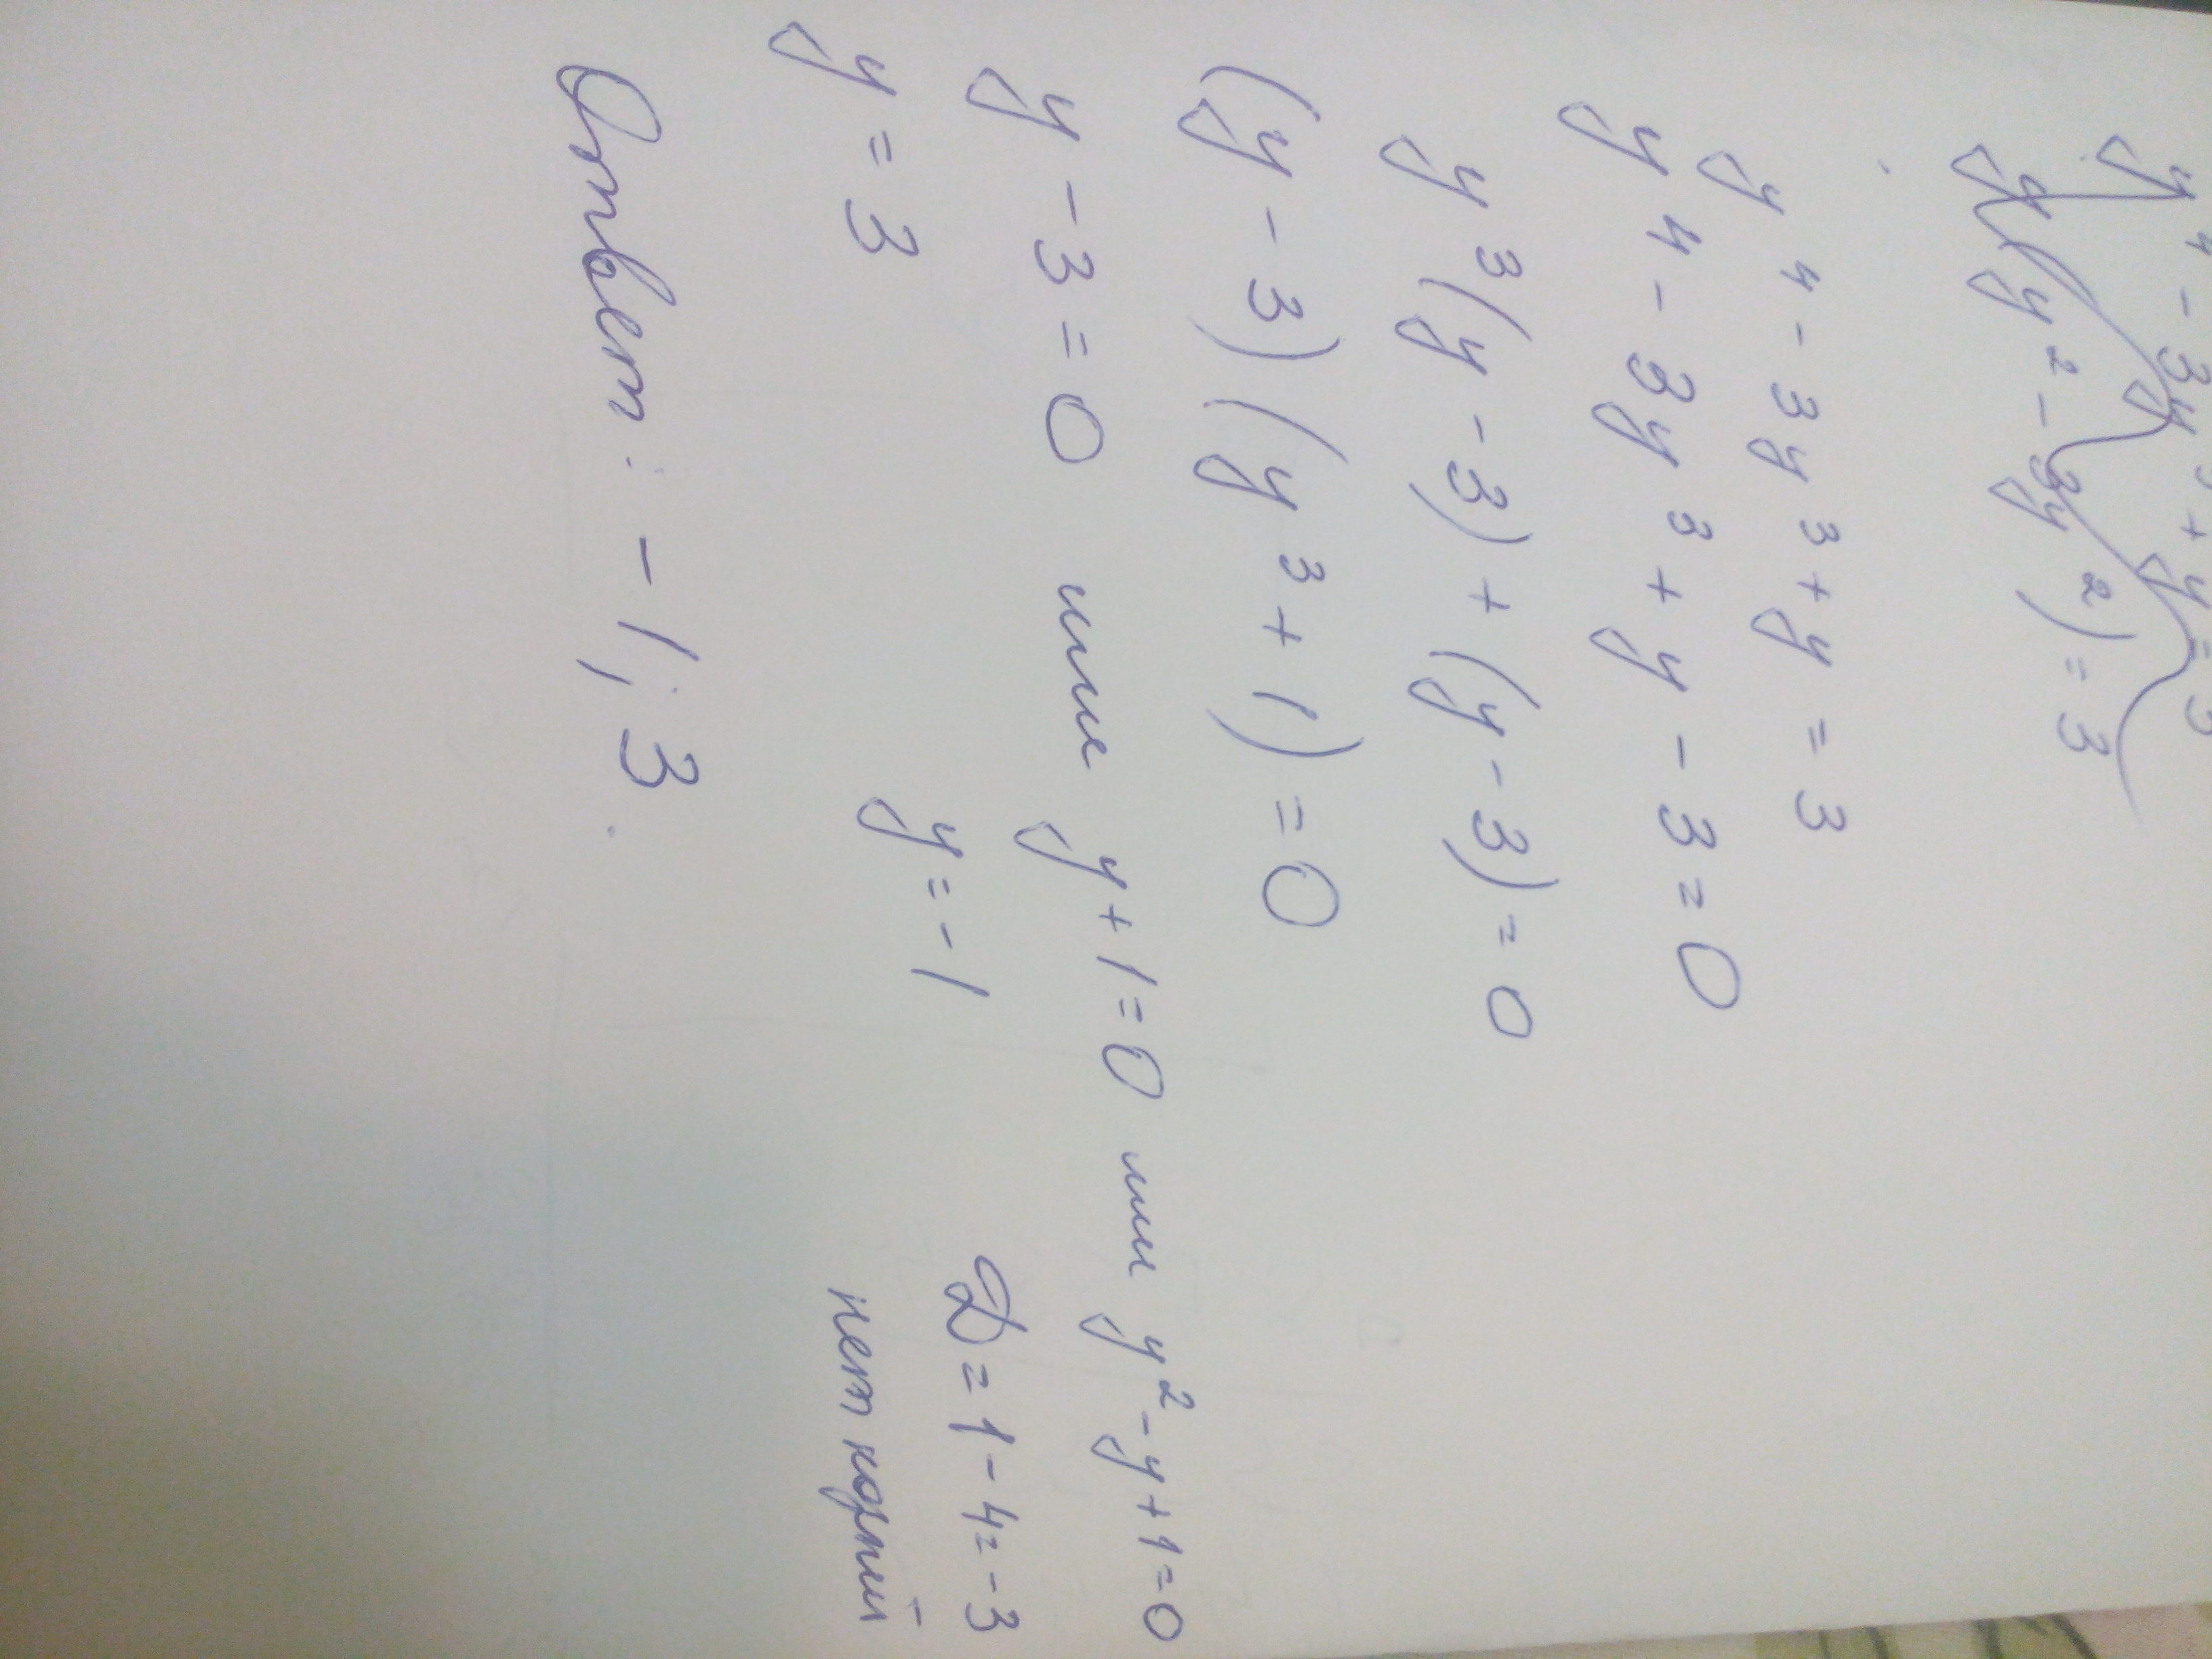 y⁴ - 3y³ + y = 3
y(y² - 3y²) = 3
y⁴ - 3y³ + y = 3
y⁴ - 3y³ + y - 3 = 0
y³(y - 3) + (y - 3) = 0
(y - 3)(y³ + 1) = 0
y - 3 = 0 или y + 1 = 0 или y² - y + 1 = 0
y = 3 y = -1 Д = 1 - 4 = -3
нет корней
Ответ: -1; 3.